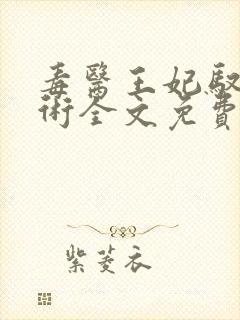 毒醫王妃馭
術全文免費
紫菱衣